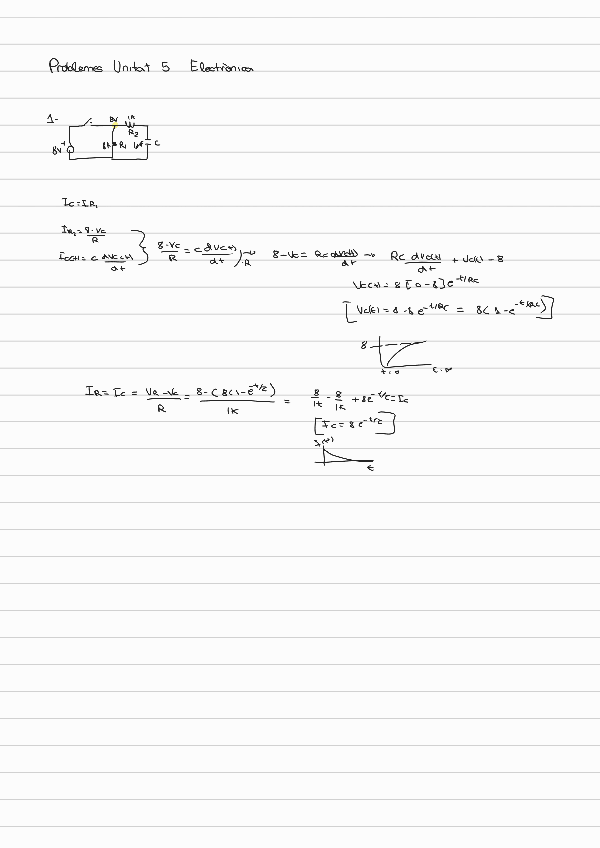 Problemes Unitat 5 Electrònica
1-
8V 1K
R2
8V + 8K R1 1µF C
Ic = IR1
IR2 = 8-Vc/R
Ic(t) = C dVc(t)/dt } 8-Vc/R = C dVc(t)/dt ).R → 8-Vc = RC dVc(t)/dt → RC dVc(t)/dt + Vc(t) - 8
Vc(t) = 8 [0-8] e^-t/RC
[Vc(t) = 8 - 8 e^-t/RC = 8(1 - e^-t/RC)]
8
t=0 t=∞
IR = Ic = VR-Vc/R = 8-(8(1-e^-t/z)/1K = 8/1K - 8/1K + 8e^-t/z = Ic
[Ic = 8 e^-t/z]
I(t)
t